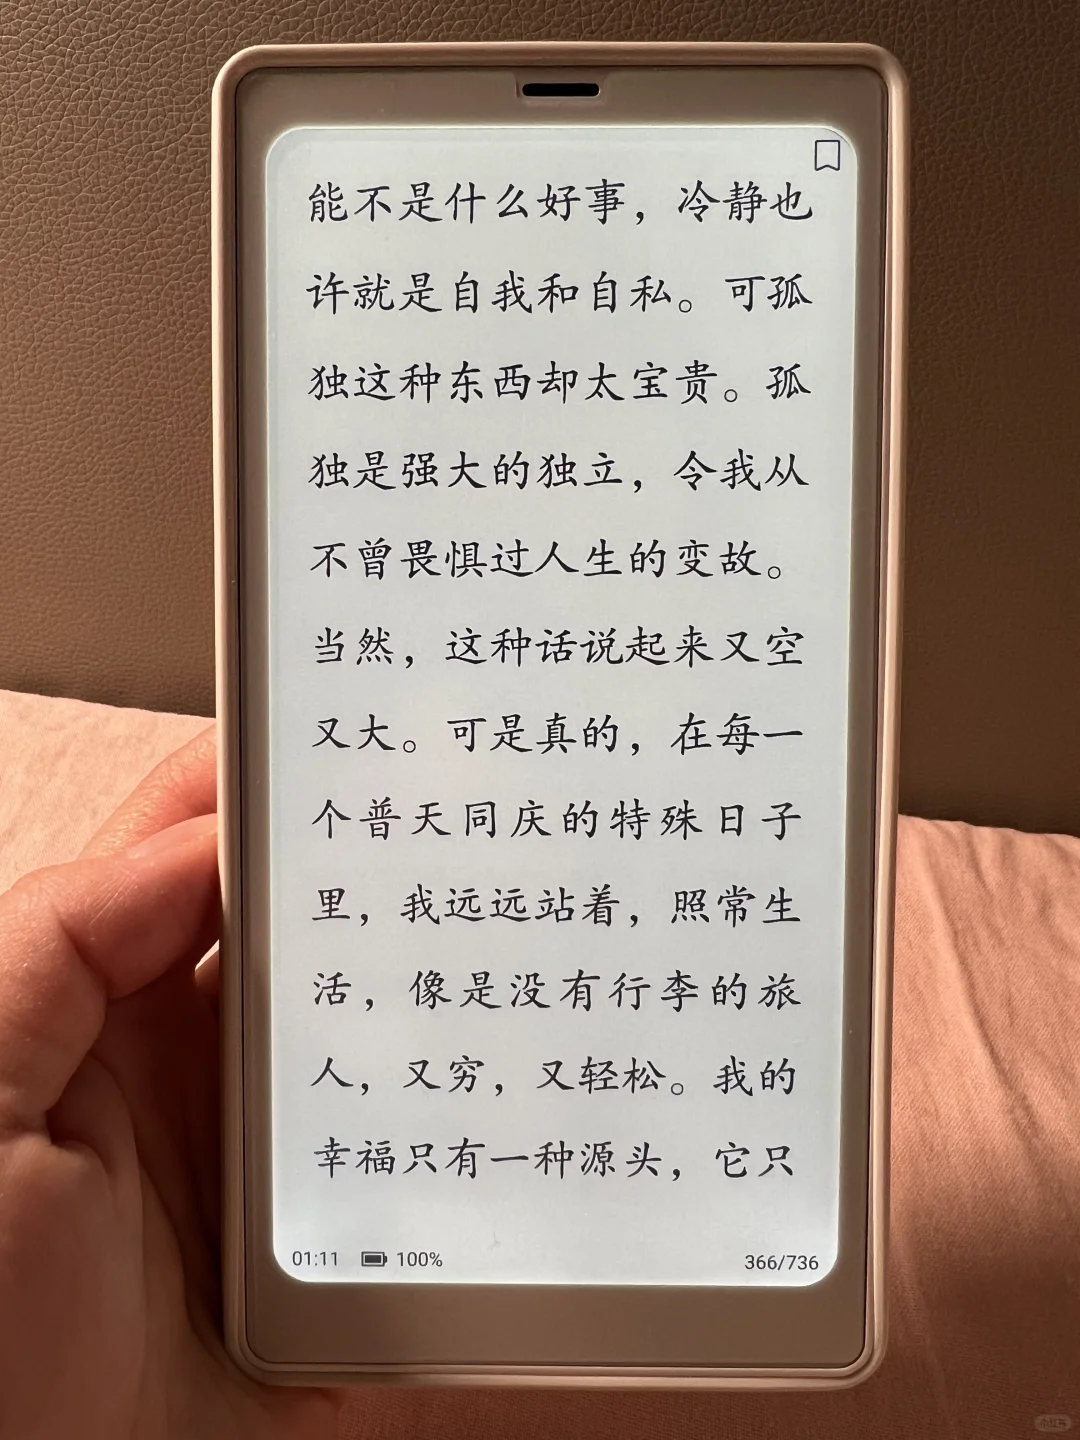 能不是什么好事，冷静也
许就是自我和自私。可孤
独这种东西却太宝贵。孤
独是强大的独立，令我从
不曾畏惧过人生的变故。
当然，这种话说起来又空
又大。可是真的，在每一
个普天同庆的特殊日子
里，我远远站着，照常生
活，像是没有行李的旅
人，又穷，又轻松。我的
幸福只有一种源头，它只
01:11 100% 366/736
小红书